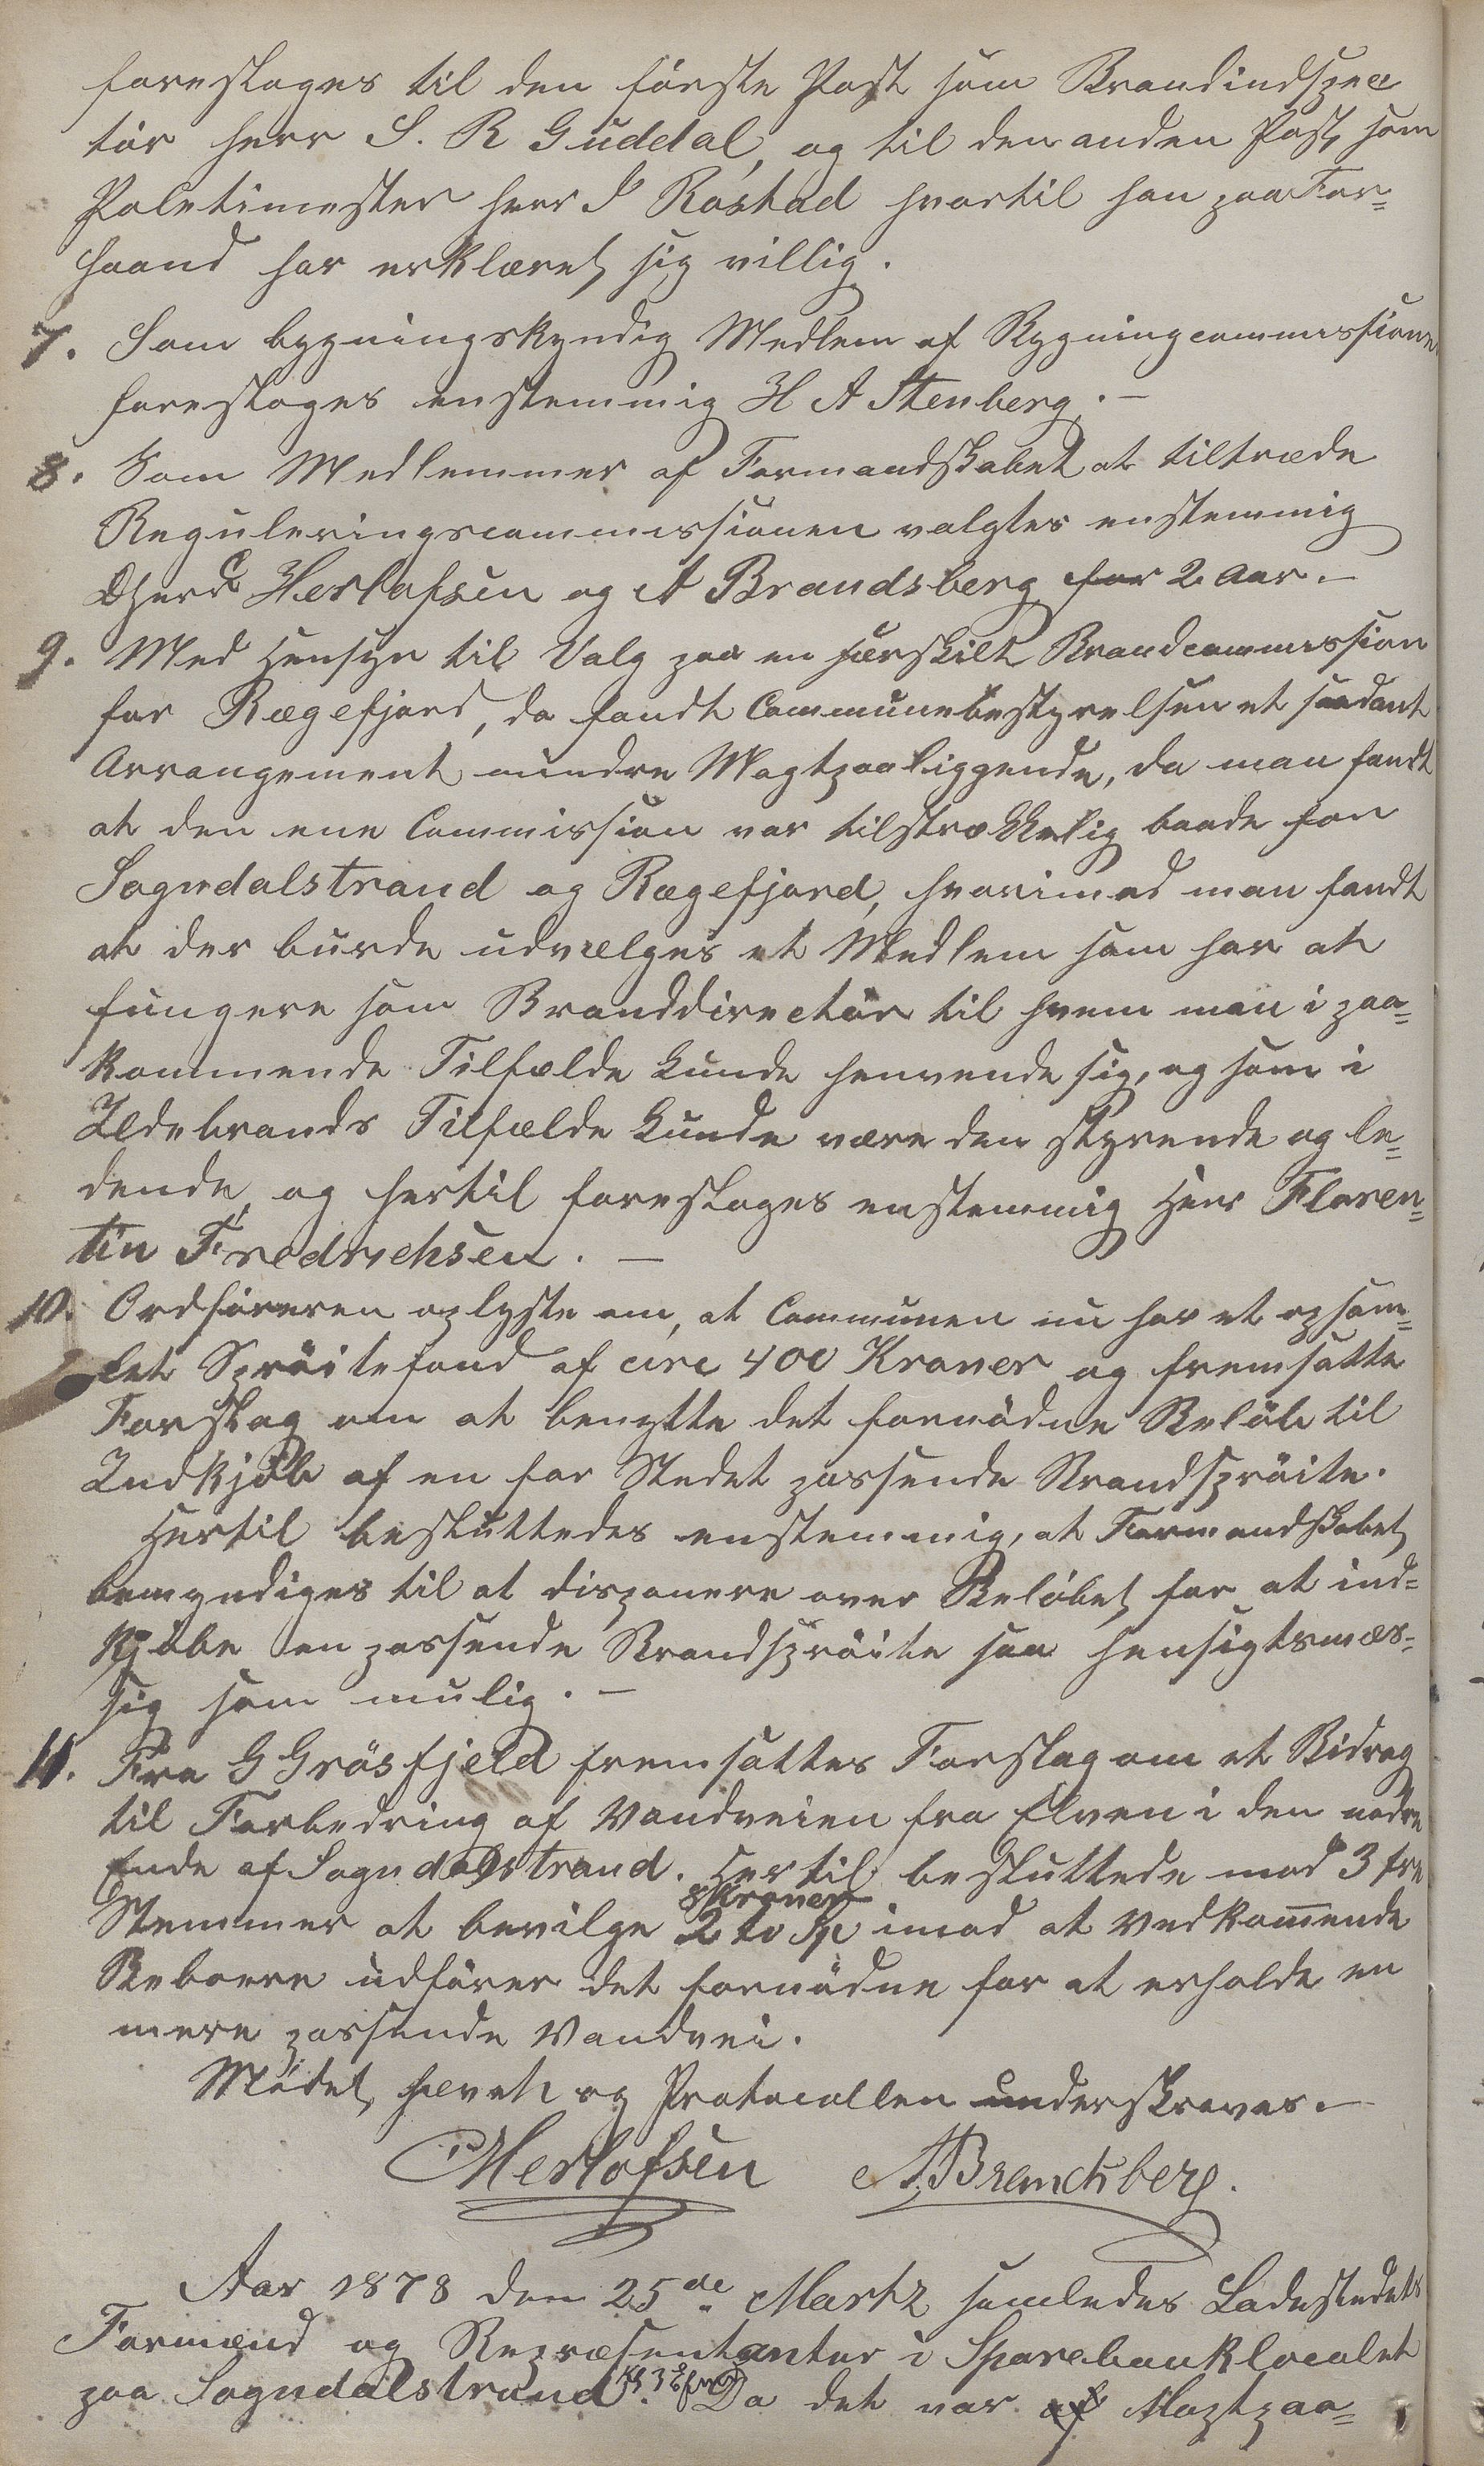 foreslages til den förste Post som Brandindspec
tör herr S. R Guddal, og til den anden Post som
Politimester herr J Rostad hvortil han paa For=
haand har erklæret sig villig.
7. Som bygningskyndig Medlem af Bygningcommissionen
foreslages enstemmig H A Stenberg. –
8. Som Medlemmer af Formandskabet at tiltræde
Reguleringscommissionen valgtes enstemmig
Dhrr C Herlofsen og A Brandsberg for 2 Aar. –
9. Med Hensyn til Valg paa en særskilt Brandcommission
for Rægefjord, da fandt Communebestyrelsen et saadant
Arrangement mindre Magtpaaliggende, da man fandt
at den ene Commission var tilstrækkelig baade for
Sogndalstrand og Rægefjord, hvorimod man fandt
at der burde udvælges et Medlem som har at
fungere som Branddirectör til hvem man i paa=
kommende Tilfælde kunde henvende sig, og som i
Ildebrands Tilfælde kunde være den styrende og le=
dende, og hertil foreslages enstemmig Herr Floren=
tin Fredrichsen. –
10. Ordföreren oplyste om, at Communen nu har et opsam=
let Spröitefond af circ 400 Kroner og fremsatte
Forslag om at benytte det fornödne Belöb til
Indkjöb af en for Stedet passende Brandspröite.
Hertil besluttedes enstemmig, at Formandskabet
bemyndiges til at disponere over Belöbet for at ind=
kjöbe en passende Brandspröite saa hensigtsmæs=
sig som mulig. –
11. Fra G Grösfjeld fremsattes Forslag om et Bidrag
til Forbedring af Vandveien fra Elven i den nedre
Ende af Sogndalstrand. Hertil besluttede mod 3 tre
8 Kroner
Stemmer at bevilge 2 to Sp imod at Vedkommende
Beboere udförer det fornödne for at erholde en
mere passende Vandvei.
Mödet hævet og Protocollen underskreves. –
C Herlofsen A. Brandsberg.
Aar 1878 den 25de Martz samledes Ladestedets
Formænd og Repræsentanter i Sparebanklocalet
paa Sogndalstrand Kl 3 Efm. Da det var af Magtpaa=